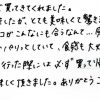 で買ってきてくれました。
したが、とても美味しくて驚き
コがこんなにも合うなんて…食
ッかりしていて、食感も大
行った際には必ず買って帰
味しく頂きました。ありがとうご